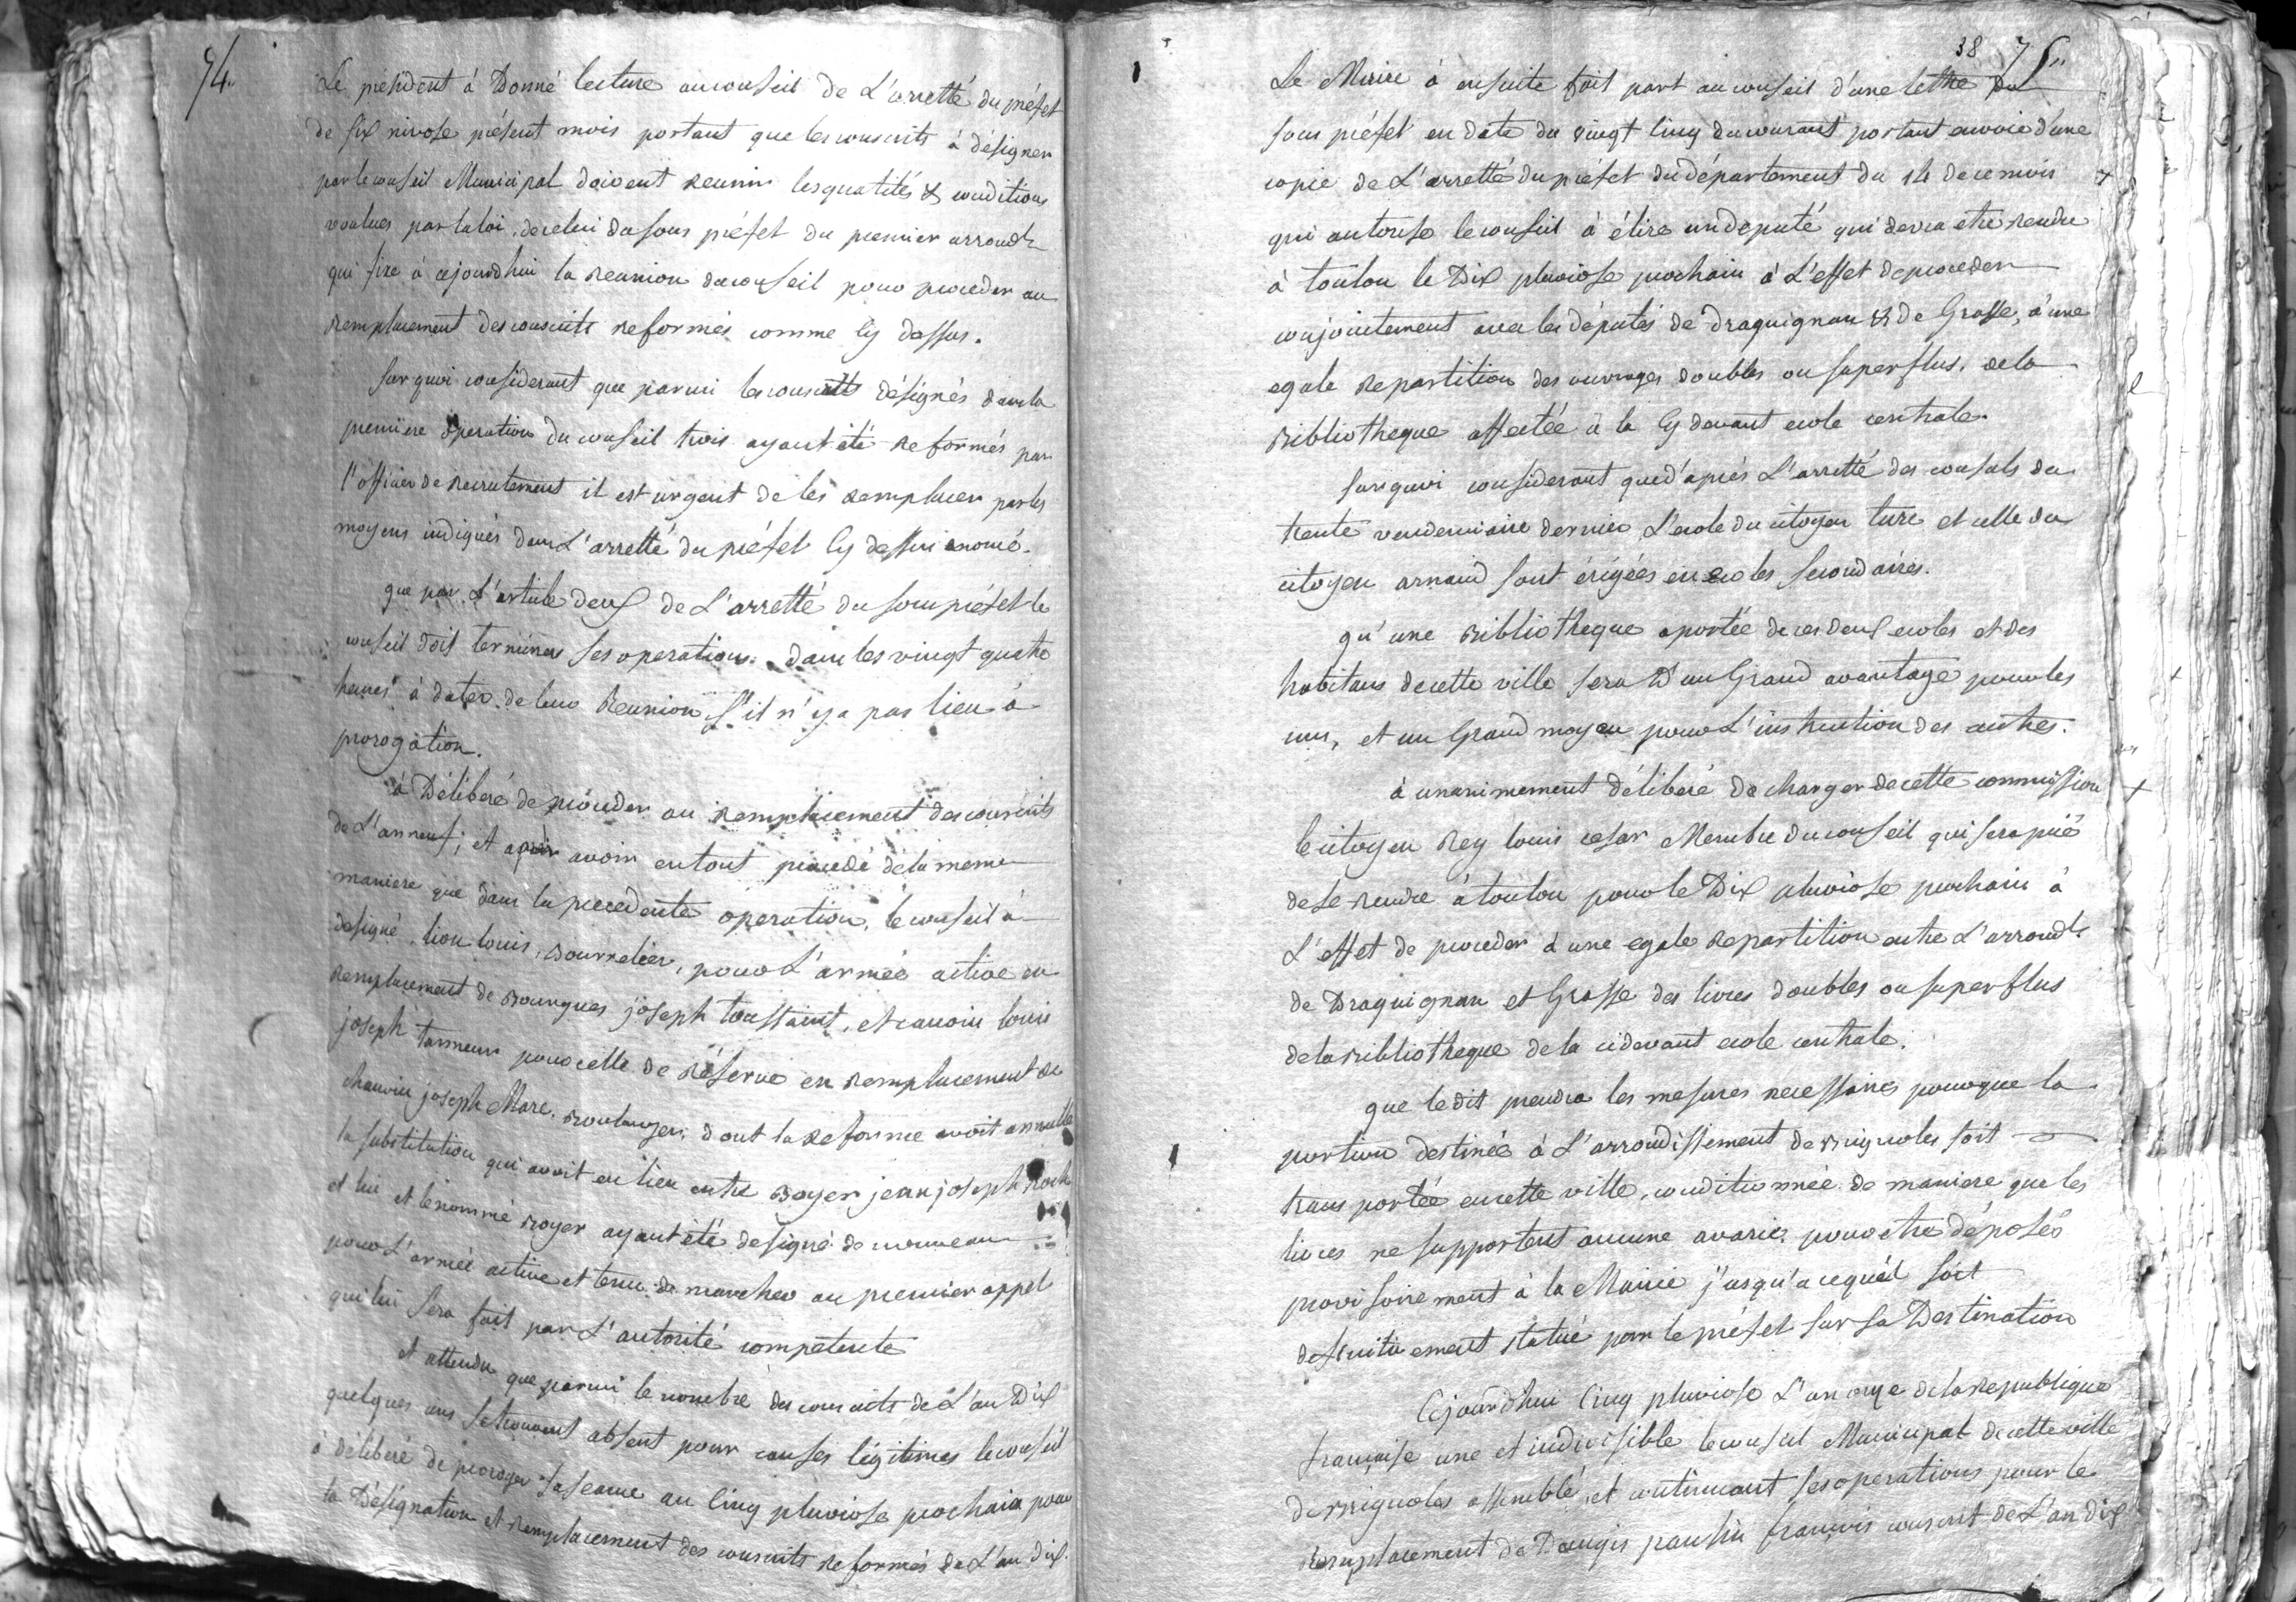 74.
Le président à Donné lecture au conseil de L'arretté du préfet
de six nivose présent mois portant que les conscrits à désigner
par le conseil Municipal doivent reunir les qualités & conditions
voulues par la loi, de celui du sous préfet du premier arrond.t
qui fixe à cejourdhui la reunion du conseil pour proceder au
remplacement des conscrits reformés comme Cy dessus.
Sur quoi considerant que parmi les conscrits désignés dans la
premiere operation du conseil trois ayant été reformés par
l'officier de recrutement il est urgent de les remplacer par les
moyens indiqués dans L'arretté du préfet Cy dessus enoncé.
que par L'article deux de L'arretté du sous préfet le
conseil doit terminer ses operations dans les vingt quatre
heures à dater de leur Reunion s'il n'y a pas lieu à
prorogation.
à Délibéré de proceder au remplacement des conscrits
de L'an neuf; et après avoir en tout procedé de la meme
maniere que dans la precedente operation, le conseil à
designé, lion louis, bourrelier, pour L'armée active en
remplacement de bourgues joseph toussaint, et cauvin louis
joseph tanneur pour celle de Réserve en remplacement de
chauvin joseph Marc, boulanger, dont la reforme avoit annullé
la substitution qui avoit eu lieu entre boyer jean joseph roch
et lui et le nommé boyer ayant été designé de nouveau
pour L'armée active et tenu de marcher au premier appel
qui lui sera fait par L'autorité competente
et attendu que parmi le nombre des conscrits de L'an Dix
quelques uns se trouvent absent pour causes légitimes le conseil
à délibéré de proroger sa seance au Cinq pluviose prochain pour
la Désignation et remplacement des conscrits reformés de L'an dix.
38 75
Le Maire à ensuite fait part au conseil d'une lettre du
sous préfet en date du vingt Cinq du courant portant envoie d'une
copie de L'arretté du préfet du département du 14 de ce mois
qui autorise le conseil à élire un deputé qui devra etre rendu
à toulon le Dix pluviose prochain à L'effet de proceder
conjointement avec les députés de Draguignan & de Grasse, à une
egale repartition des ouvrages doubles ou superflus, de la
bibliotheque affectée à la Cy devant ecole centrale.
Sur quoi considerant que d'après L'arretté des consuls du
trente vendemiaire dernier L'ecole du citoyen turc et celle du
citoyen arnaud sont érigées en ecoles secondaires.
qu'une bibliotheque a portée de ces deux ecoles et des
habitans de cette ville sera D'un Grand avantage pour les
uns, et un Grand moyen pour L'instruction des autres.
à unanimement délibéré de charger de cette commission
le citoyen Rey louis cesar Membre du conseil qui sera prié
de se rendre à toulon pour le Dix pluviose prochain à
L'effet de proceder à une egale repartition entre L'arrond.t
de Draguignan et Grasse des livres doubles ou superflus
de la bibliotheque de la ci devant ecole centrale.
que le dit prendra les mesures necessaires pour que la
portion destinée à L'arrondissement de brignoles soit
transportée en cette ville, conditionnée de maniere que les
livres ne supportent aucune avarie, pour etre déposés
provisoirement à la Mairie j'usqu'a cequ'il soit
definitivement statué par le préfet sur sa Destination
Cejourd'hui Cinq pluviose L'an onze de la republique
francaise une et indivisible le conseil Municipal de cette ville
de brignoles assemblé, et continuant ses operations pour le
remplacement de Daugis paulin francois conscrit de L'an dix